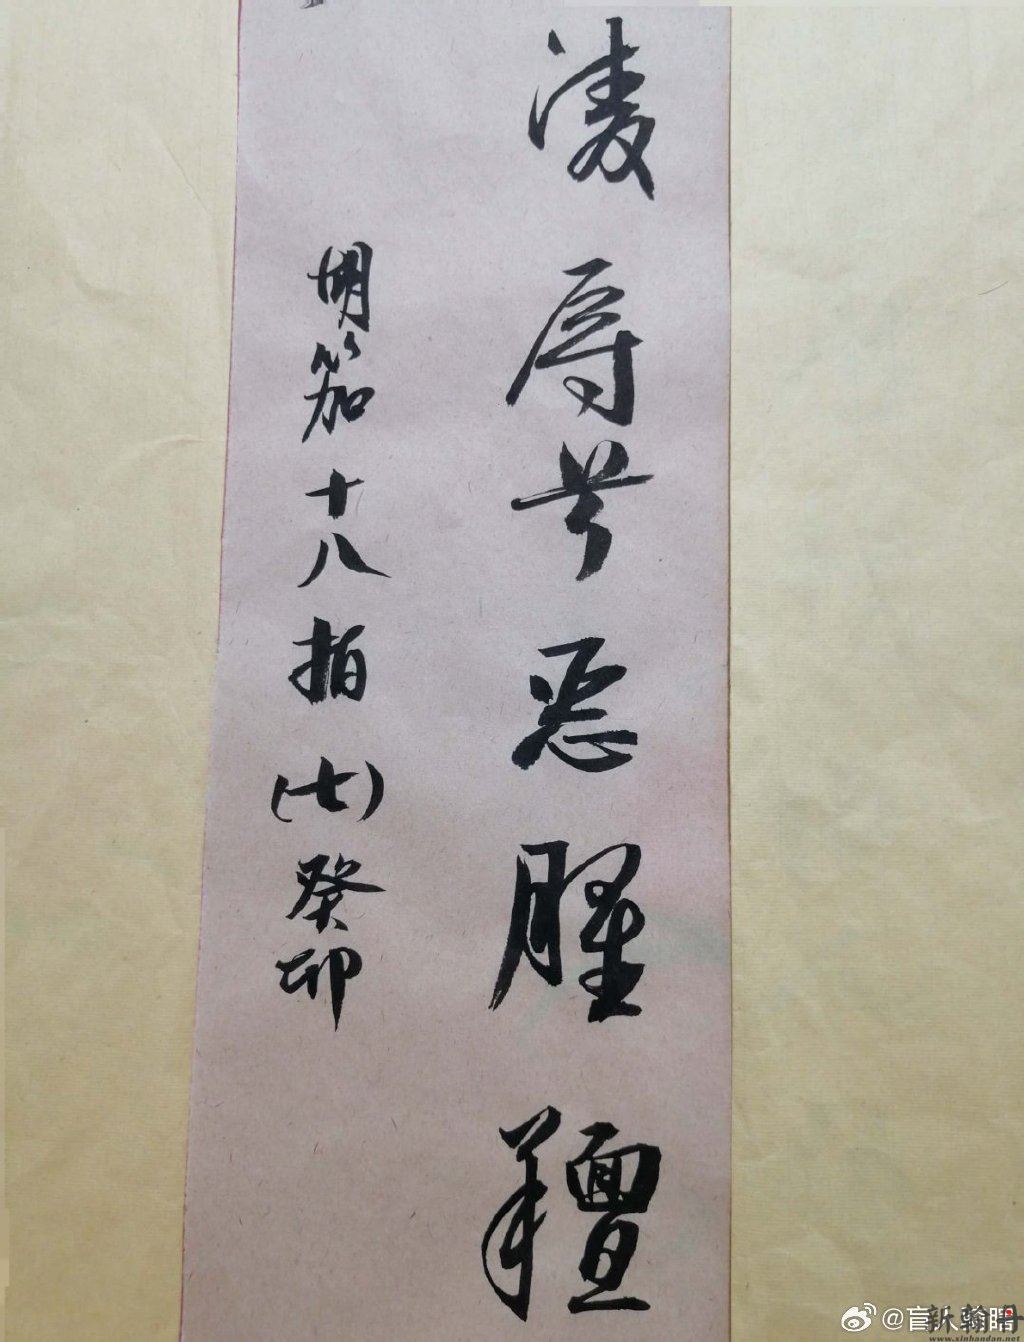 淩辱兮恶腥羶
胡笳十八拍(七)癸卯
新翰丹
www.xinhandan.net